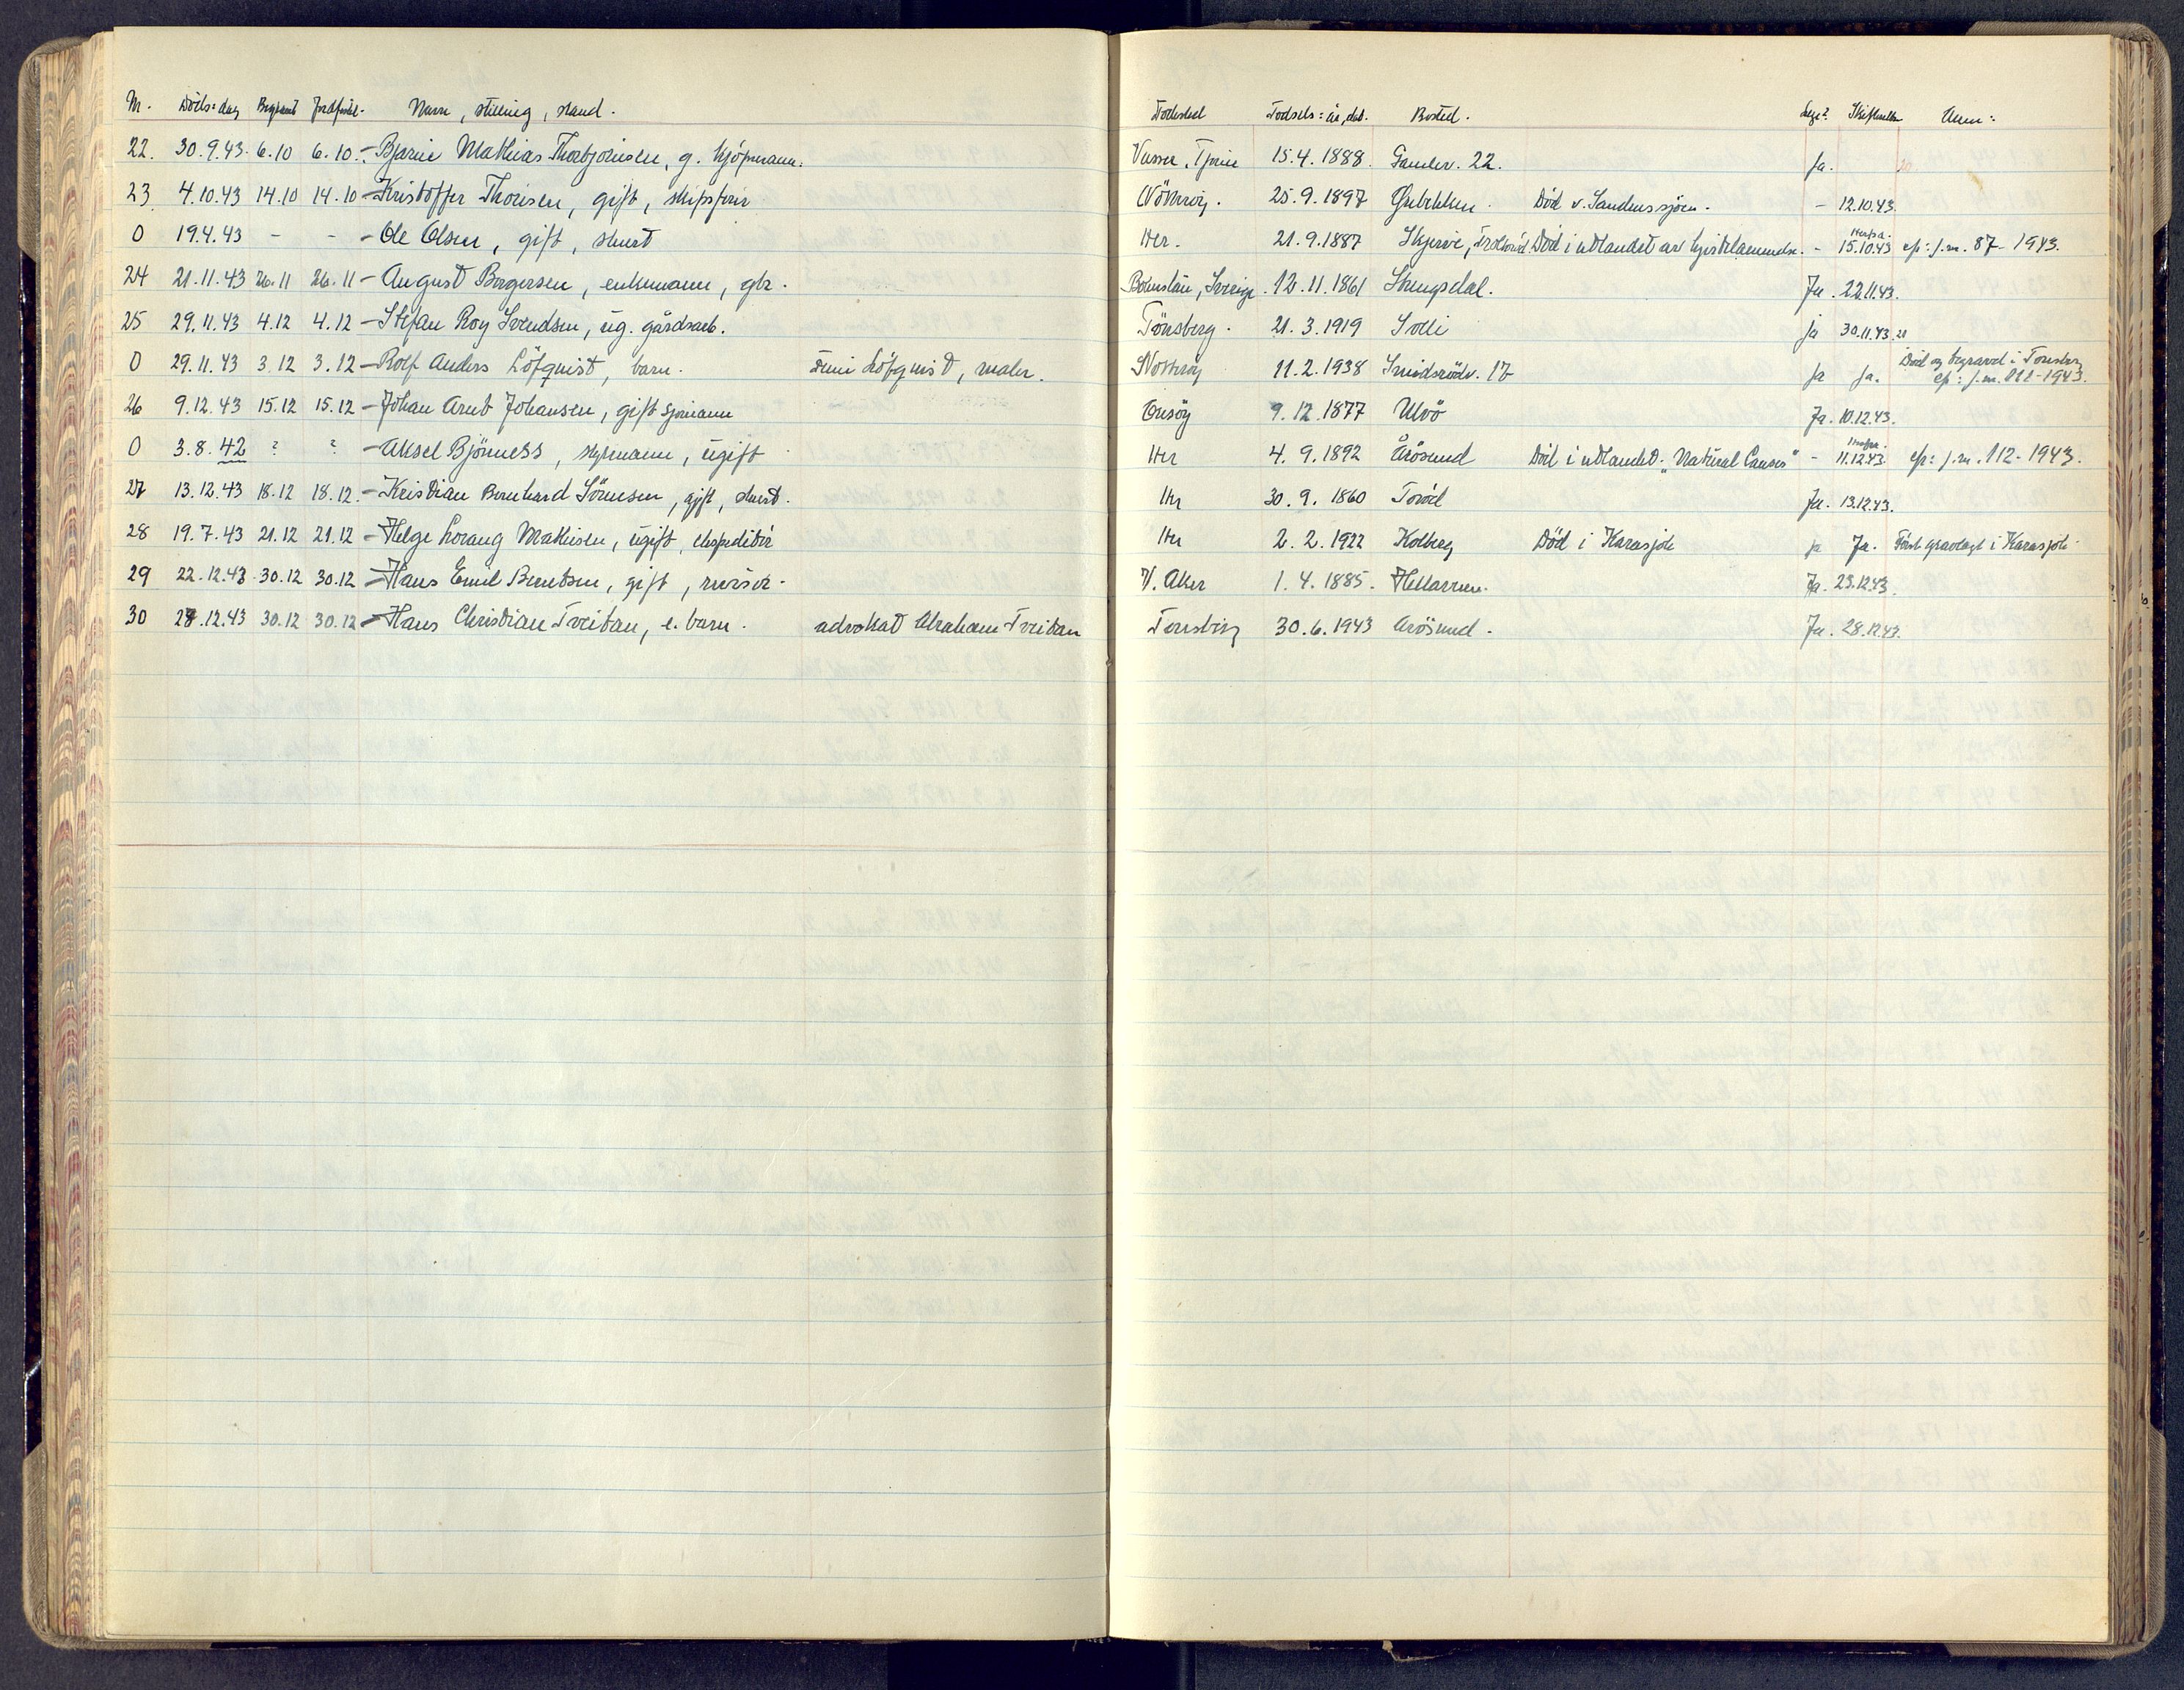 M. Döds:dag Begravet Jordfestet Navn, stilling, stand. Födested Födsels: år, dat. Bosted. Lege? Skifteretten Anm:
22. 30.9.43. 6.10 6.10. - Bjarne Mathias Thorbjørnsen, g. kjöpmann. Tjøme 15.4.1888. Gamlev. 22. Ja.
23. 4.10.43 14.10 14.10 - Kristoffer Thorisen, gift, skipsfører Nötteröy. 25.9.1897 Död v. Sandnessjøen. - 12.10.43.
0 19.4.43 - - - Ole Olsen, gift, stuert Her. 21.9.1887 Skjerve, Död i utlandet av - 15.10.43 cfr: j.nr. 87-1943.
24 21.11.43 26.11 26.11 - August Borgersen, enkemann, gbr. Bohuslän, Sverige. 12.11.1861 Stangsdal. Ja. 22.11.43.
25 29.11.43 4.12 4.12 - Stefan Roy Svendsen, ug. gårdsarb. Tönsberg. 21.3.1919 Solli ja 30.11.43.
0 29.11.43 3.12 3.12 - Rolf Anders Löfquist, barn. Löfquist, maler. Nötteröy 11.2.1938 Smidsrödv. 17 ja ja. Död og begravet i Tönsberg
cfr: j.nr. 1943.
26 9.12.43 15.12 15.12 - Johan Arnt Johansen, gift sjømann Onsöy 9.12.1877 Ulvö Ja. 10.12.43.
0 3.8.42 ? ? - Aksel Bjönness, styrmann, ugift Her 4.9.1892 Årösund Död i utlandet. "Natural Causes" - 11.12.43. cfr: j.nr. 112-1943.
27 13.12.43 18.12 18.12. - Kristian Bernhard Sörensen, gift, stuert. Her 30.9.1860 Toröd Ja. 13.12.43.
28 19.7.43 21.12 21.12 - Helge Lorang Mathisen, ugift, ekspeditör Her 2.2.1922 Kolberg Död i Karasjok ja Ja. Först gravlagt i Karasjok
29 22.12.43. 30.12 30.12 - Hans Emil Berntsen, gift, revisor. V. Aker 1.4.1885. Ja. 23.12.43.
30 27.12.43 30.12 30.12 - Hans Christian Treitan, e. barn. advokat Abraham Treitan Tönsberg 30.6.1943 Årösund. Ja. 28.12.43.